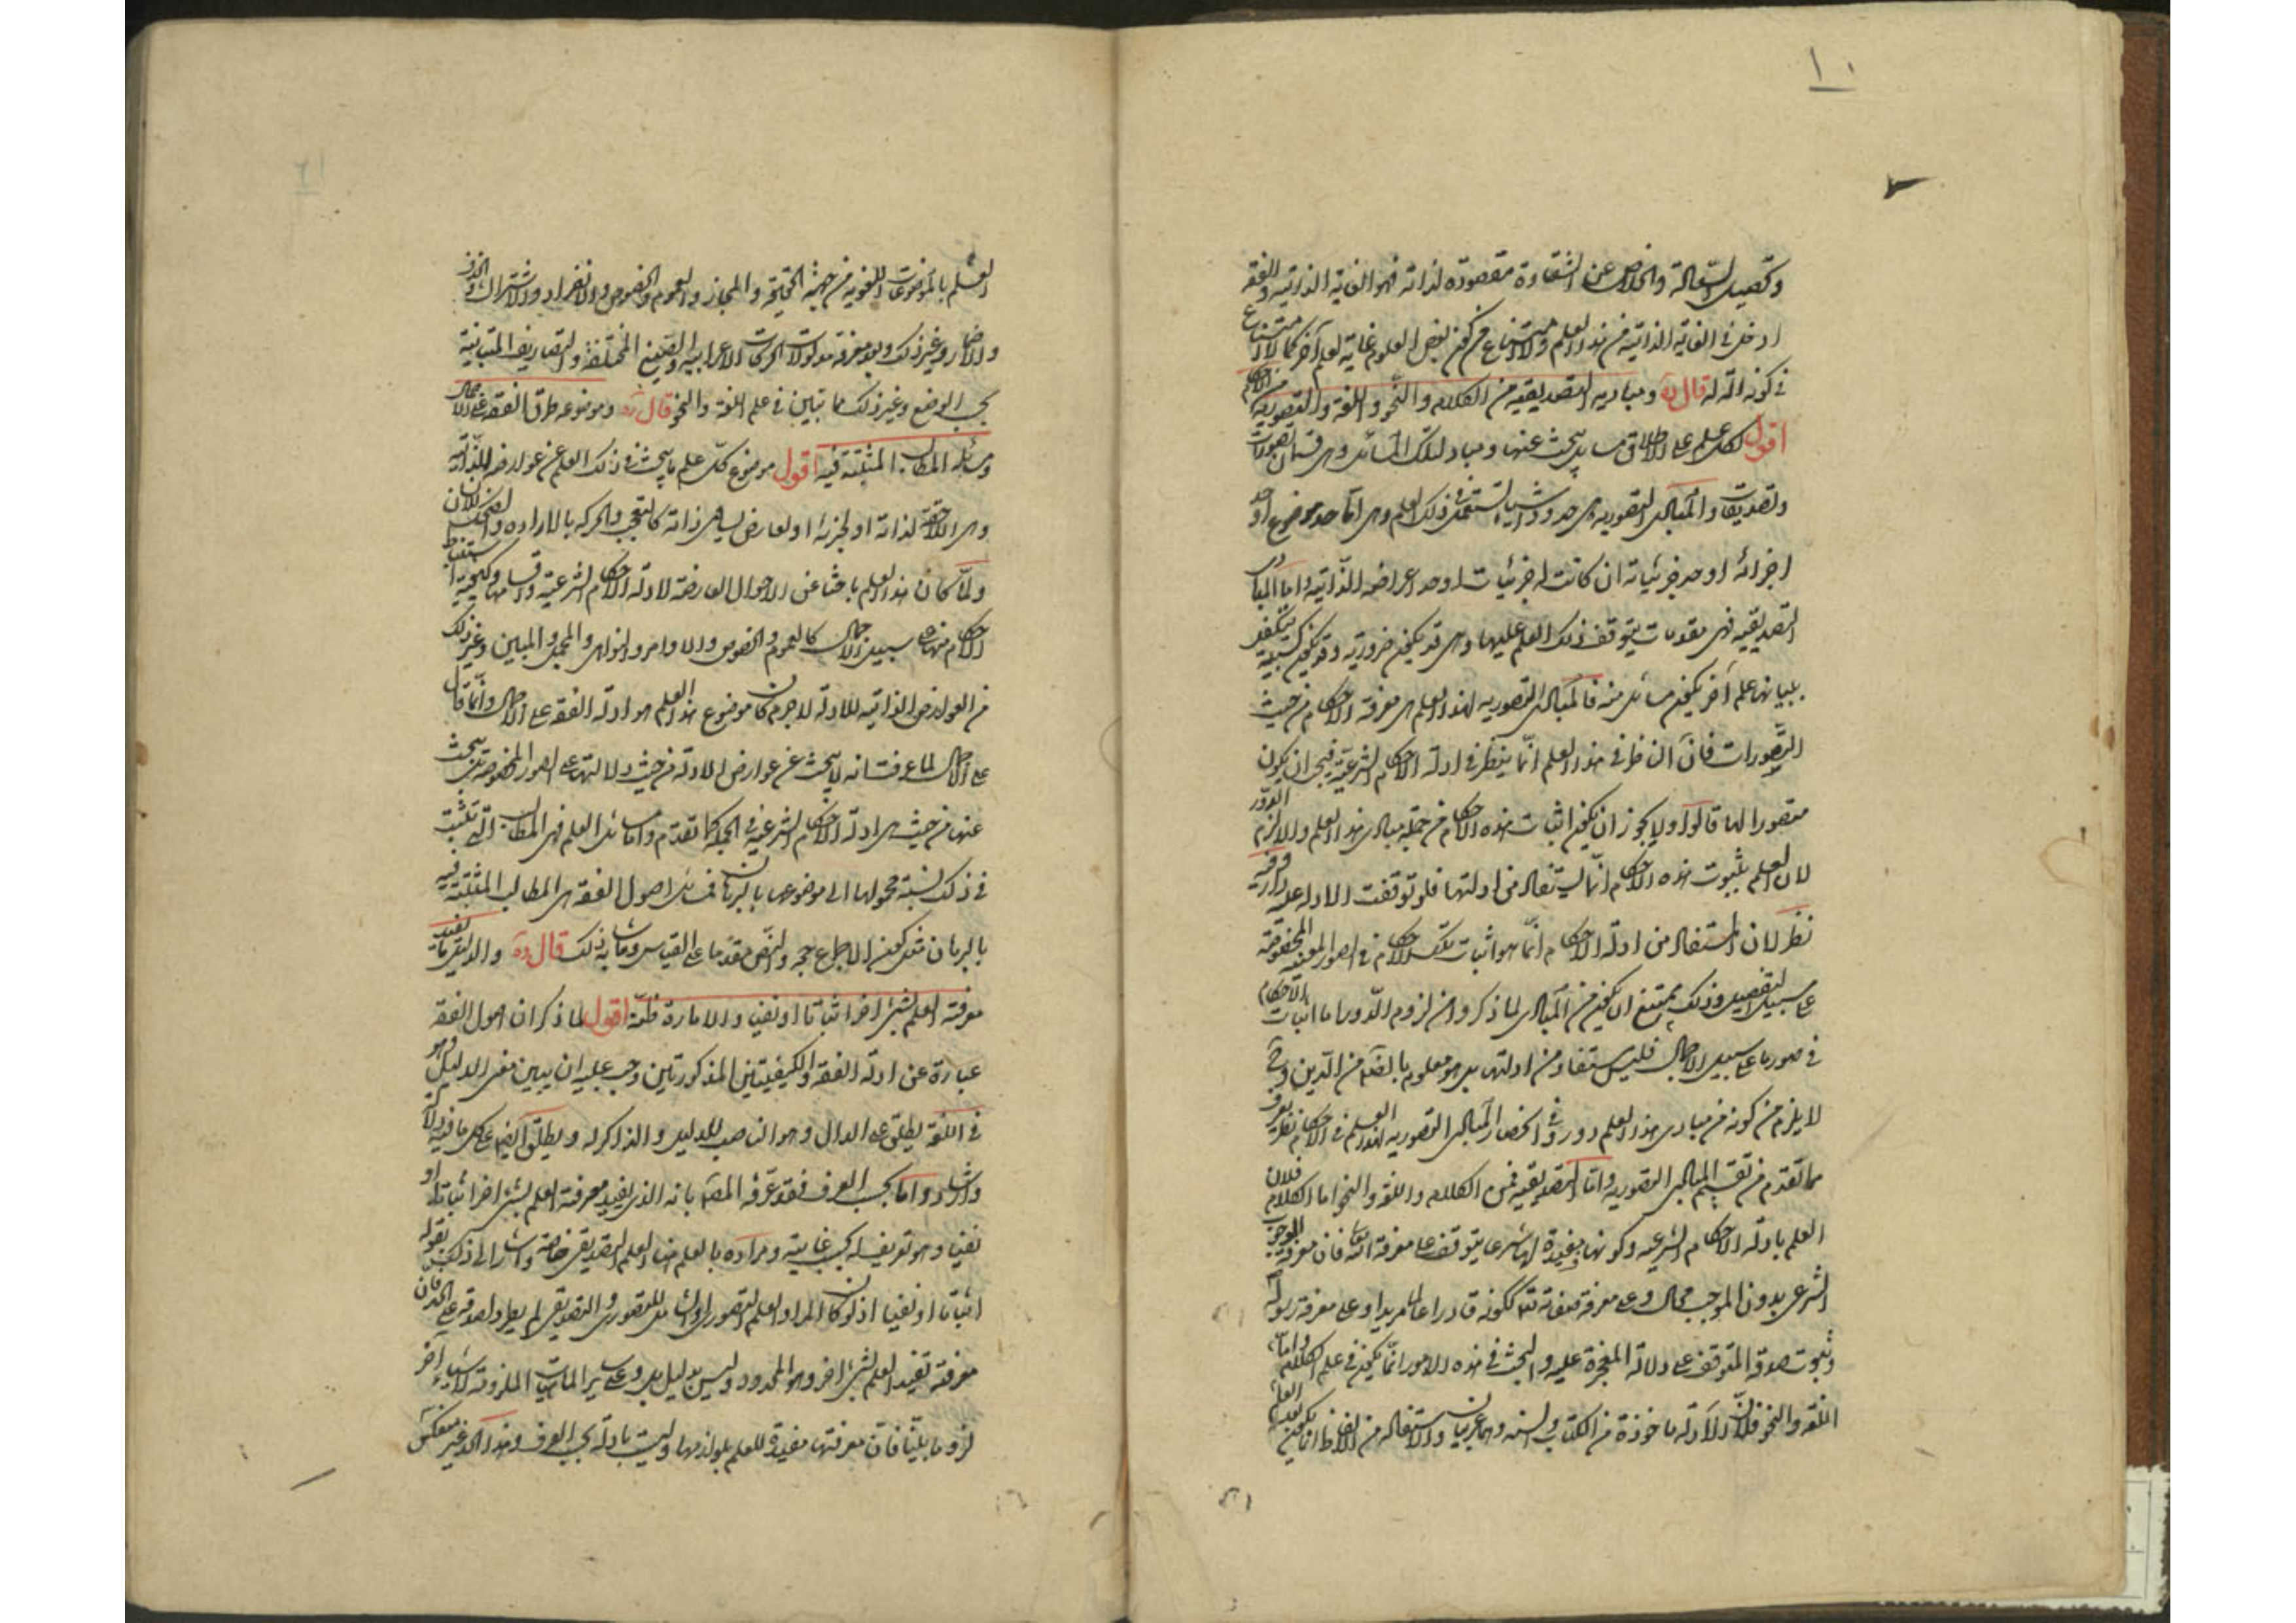 ١٠
وتحصيل السعادة والخلاص عن الشقاوة مقصودة لذاته فهو الغاية الذاتية والفقه
ادخل في الغاية الذاتية من هذا العلم ولا امتناع في كون بعض العلوم غاية لعلم آخر كما لا امتناع
في كونه آلة له قال ره ومباديه التصديقية من الكلام والنحو واللغة والتصورية من الاحكام
اقول لكل علم على الاطلاق مسائل يبحث عنها ومباد لتلك المسائل وهي قسمان تصورات
وتصديقات والمبادي التصورية هي حدود اشياء تستعمل في ذلك العلم وهي اما حد موضوع او حد
اجزائه او حد جزئياته ان كانت له جزئيات او حد اعراضه الذاتية واما المبادي
التصديقية فهي مقدمات يتوقف ذلك العلم عليها وهي قد يكون ضرورية وقد يكون كسبية يتكفل
ببيانها علم آخر يكون مسائل منه فالمبادي التصورية لهذا العلم هي معرفة الاحكام من حيث
التصورات فان الناظر في هذا العلم انما ينظر في ادلة الاحكام الشرعية فيجب ان يكون
متصورا لها قالوا ولا يجوز ان يكون اثبات هذه الاحكام من جملة مبادي هذا العلم والا لزم الدور
لان العلم بثبوت هذه الاحكام انما يستفاد من ادلتها فلو توقفت الادلة عليه دار وفيه
نظر لان المستفاد من ادلة الاحكام انما هو اثبات تلك الاحكام في الصور المعينة المخصوصة
على سبيل التفصيل وذلك يمتنع ان يكون من المبادي لما ذكروا من لزوم الدور اما اثبات الاحكام
في صورها على سبيل الاجمال فليس مستفاد من ادلتها بل هو معلوم بالضرورة من الدين وح
لا يلزم من كونه من مبادي هذا العلم دور وفي انحصار المبادي التصورية لهذا العلم في الاحكام نظر يعرف
مما تقدم من تقسيم المبادي التصورية واما التصديقية فمن الكلام واللغة والنحو اما الكلام فلان
العلم بادلة الاحكام الشرعية وكونها مفيدة لها شرعا يتوقف على معرفة الله تعالى فان معرفة الوجوب
الشرعي بدون الموجب محال وعلى معرفة صفاته ككونه قادرا عالما مريدا وعلى معرفة رسوله
وثبوت صدقه المتوقف على دلالة المعجزة عليه والبحث في هذه الامور انما يكون في علم الكلام واما
اللغة والنحو فلان الادلة ماخوذة من الكتاب والسنة وهما عربيان والاستفادة من الفاظهما انما يكون بعد
العلم بالموضوعات اللغوية من جهة الحقيقة والمجاز والعموم والخصوص والانفراد والاشتراك والحذف
والاضمار وغير ذلك وبعد معرفة مدلولات الحركات الاعرابية والصيغ المختلفة والتصاريف المتباينة
بحسب الوضع وغير ذلك مما تبين في علم اللغة والنحو قال ره وموضوعه طرق الفقه على الاجمال
ومسائله المطالب المثبتة فيه اقول موضوع كل علم ما يبحث في ذلك العلم عن عوارضه الذاتية
وهي اللاحقة لذاته او لجزئه او لعارض يساوي ذاته كالتعجب والحركة بالارادة والضحك للانسان
ولما كان هذا العلم باحثا عن الاحوال العارضة لادلة الاحكام الشرعية واقسامها وكيفية استنباط
الاحكام منها على سبيل الاجمال كالعموم والخصوص والاوامر والنواهي والمجمل والمبين وغير ذلك
من العوارض الذاتية للادلة لا جرم كان موضوع هذا العلم هو ادلة الفقه على الاجمال وانما قال
على الاجمال لما عرفت انه لا يبحث عن عوارض الادلة من حيث دلالتها على الصور المخصوصة بل يبحث
عنها من حيث هي ادلة الاحكام الشرعية في الجملة كما تقدم واما مسائل العلم فهي المطالب التي تثبت
في ذلك نسبة محمولها الى موضوعها بالبرهان فمسائل اصول الفقه هي المطالب المثبتة فيه
بالبرهان مثل كون الاجماع حجة والنص مقدما على القياس وما شابه ذلك قال ره والدليل ما يفيد
معرفته العلم بشيء اخر اثباتا او نفيا والامارة ظنه اقول لما ذكر ان اصول الفقه
عبارة عن ادلة الفقه والكيفيتين المذكورتين وجب عليه ان يبين معنى الدليل وهو
في اللغة يطلق على الدال وهو الناصب للدليل والذاكر له ويطلق ايضا على كل ما فيه دلالة
وارشاد واما بحسب العرف فقد عرفه المص بانه الذي يفيد معرفته العلم بشيء اخر اثباتا او
نفيا وهو تعريف له بحسب غايته ومراده بالعلم هنا العلم التصديقي خاصة واشار الى ذلك بقوله
اثباتا او نفيا اذ لو كان المراد العلم التصوري او الشامل للتصوري والتصديقي لم يطرد لصدقه على الحد فان
معرفته تفيد العلم بشيء اخر وهو المحدود وليس بدليل بل وعلى ساير الماهيات الملزومة لاشياء اخر
لزوما بينا فان معرفتها مفيدة للعلم بلوازمها وليست بادلة بحسب العرف وهذا الحد غير منعكس